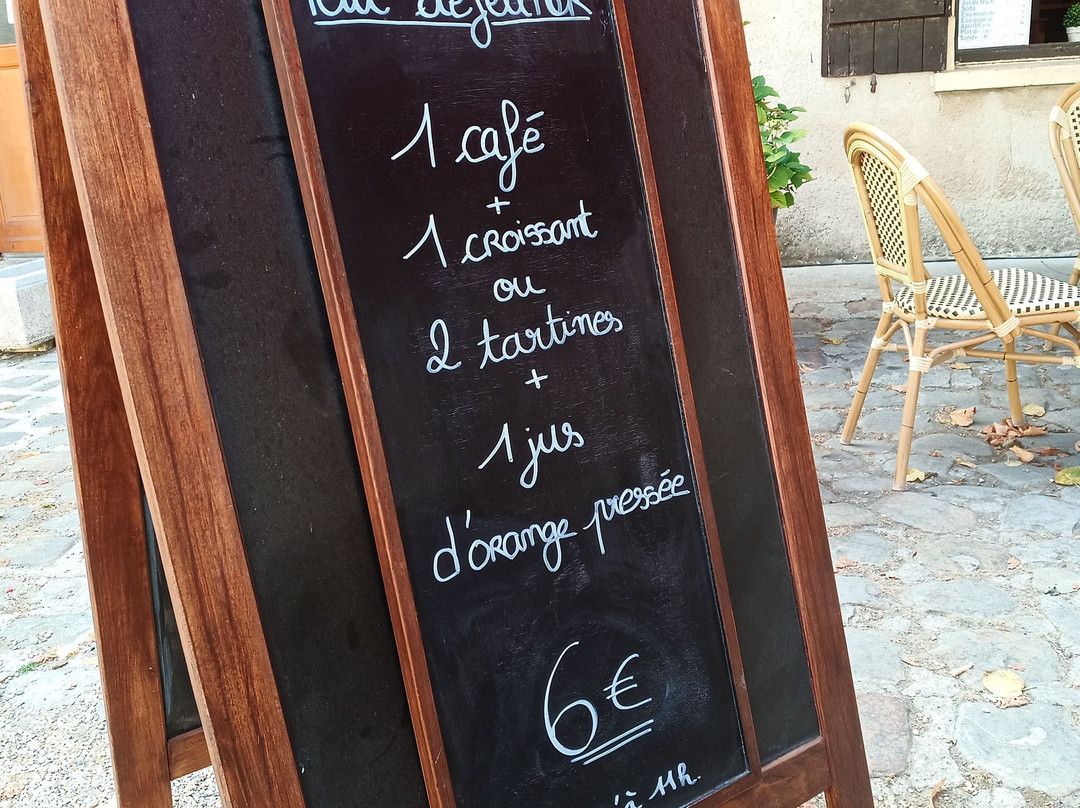 déjeuner
1 café
+
1 croissant
ou
2 tartines
+
1 jus
d'orange pressée
6€
à 11h.